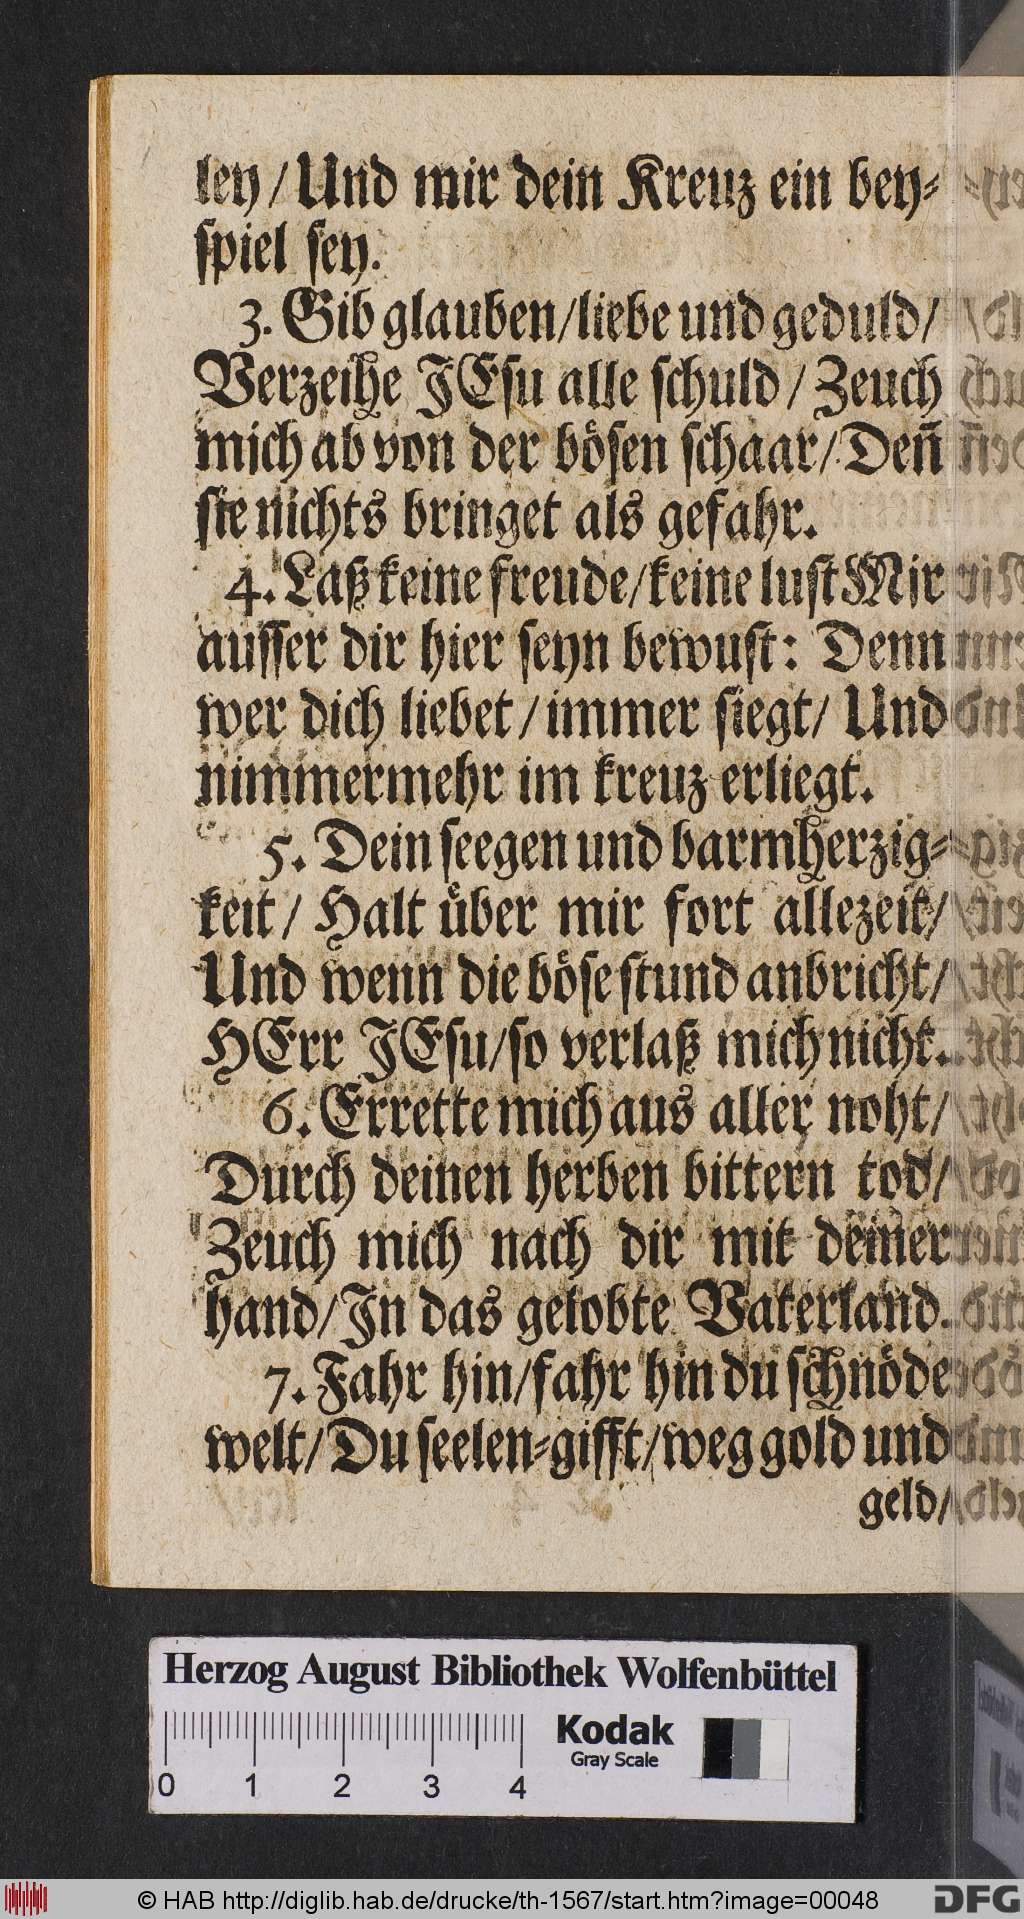 ley / Und mir dein Kreuz ein bey⸗
spiel sey.
3. Gib glauben/liebe und geduld/
Verzeihe JEsu alle schuld / Zeuch
mich ab von der bösen schaar/ Deñ
sie nichts bringet als gefahr.
4. Laß keine freude/keine lust Mir
ausser dir hier seyn bewust: Denn
wer dich liebet / immer siegt/ Und
nimmermehr im kreuz erliegt.
5. Dein seegen und barmherzig⸗
keit / Halt über mir fort allezeit/
Und wenn die böse stund anbricht/
HErr JEsu/so verlaß mich nicht.
6. Errette mich aus aller noht/
Durch deinen herben bittern tod/
Zeuch mich nach dir mit deiner
hand/In das gelobte Vaterland.
7. Fahr hin/fahr hin du schnöde
welt/ Du seelen⸗gifft/weg gold und
geld/
Herzog August Bibliothek Wolfenbüttel
0 1 2 3 4
Kodak
Gray Scale
© HAB http://diglib.hab.de/drucke/th-1567/start.htm?image=00048
DFG